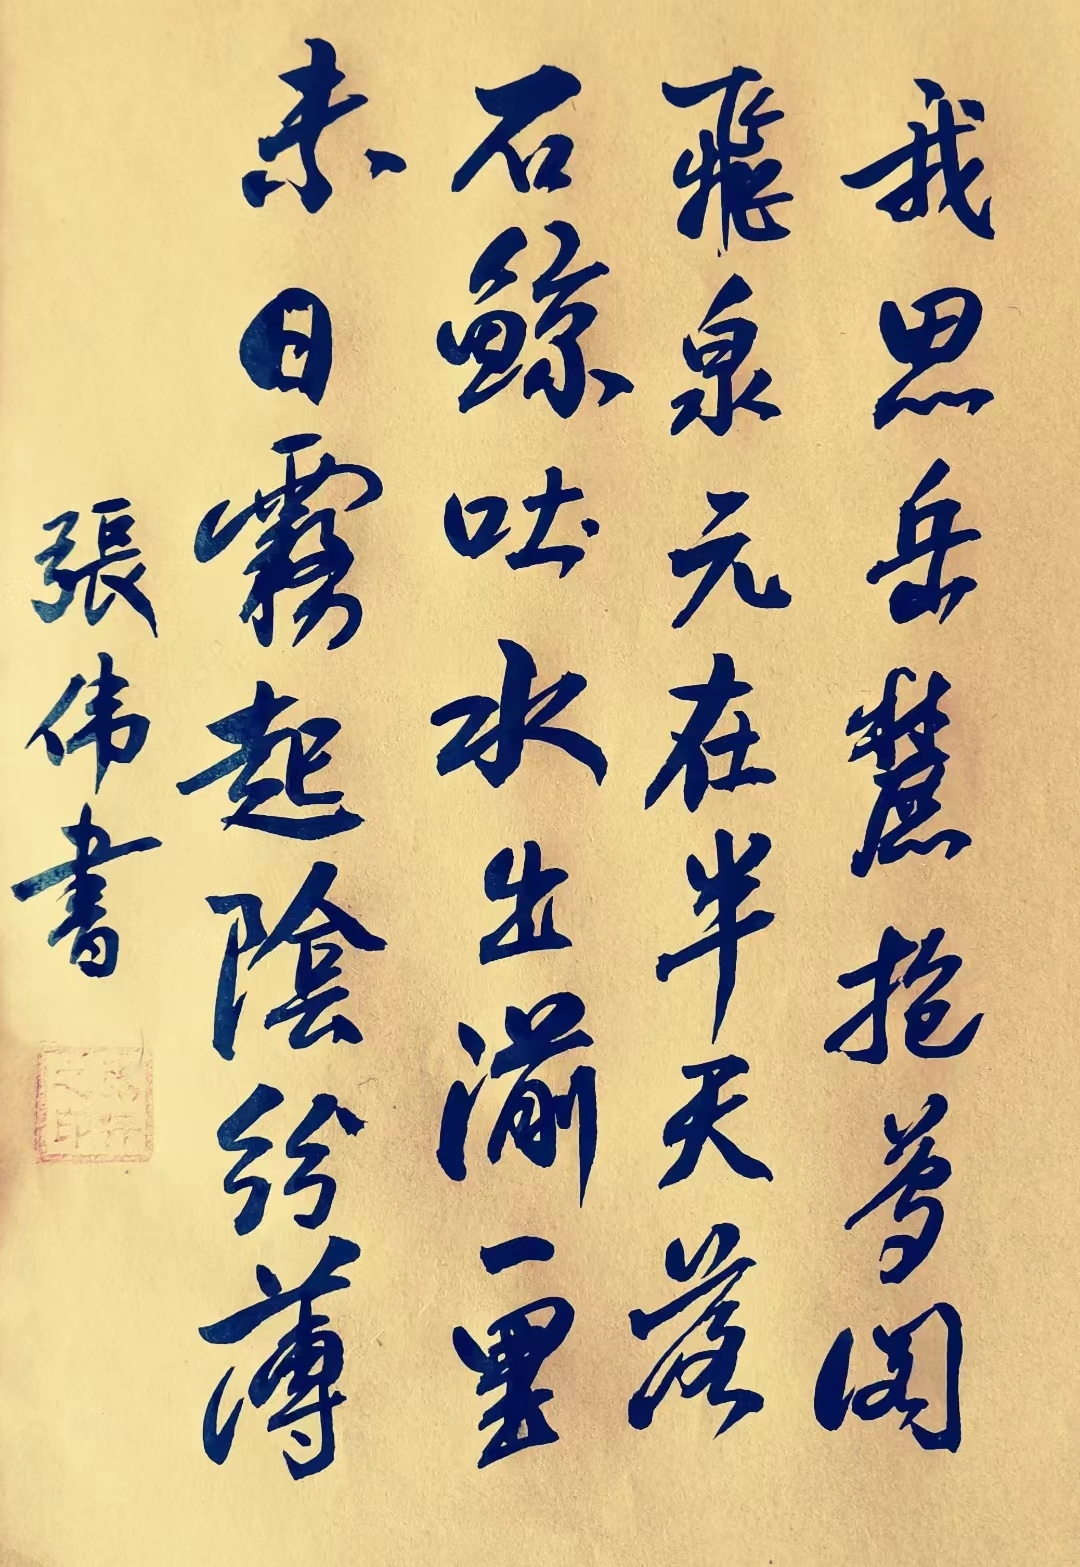 我思岳麓抱閣
飛泉元在半天落
石鯨吐水出湔一里
赤日霧起陰紛薄
張伟書